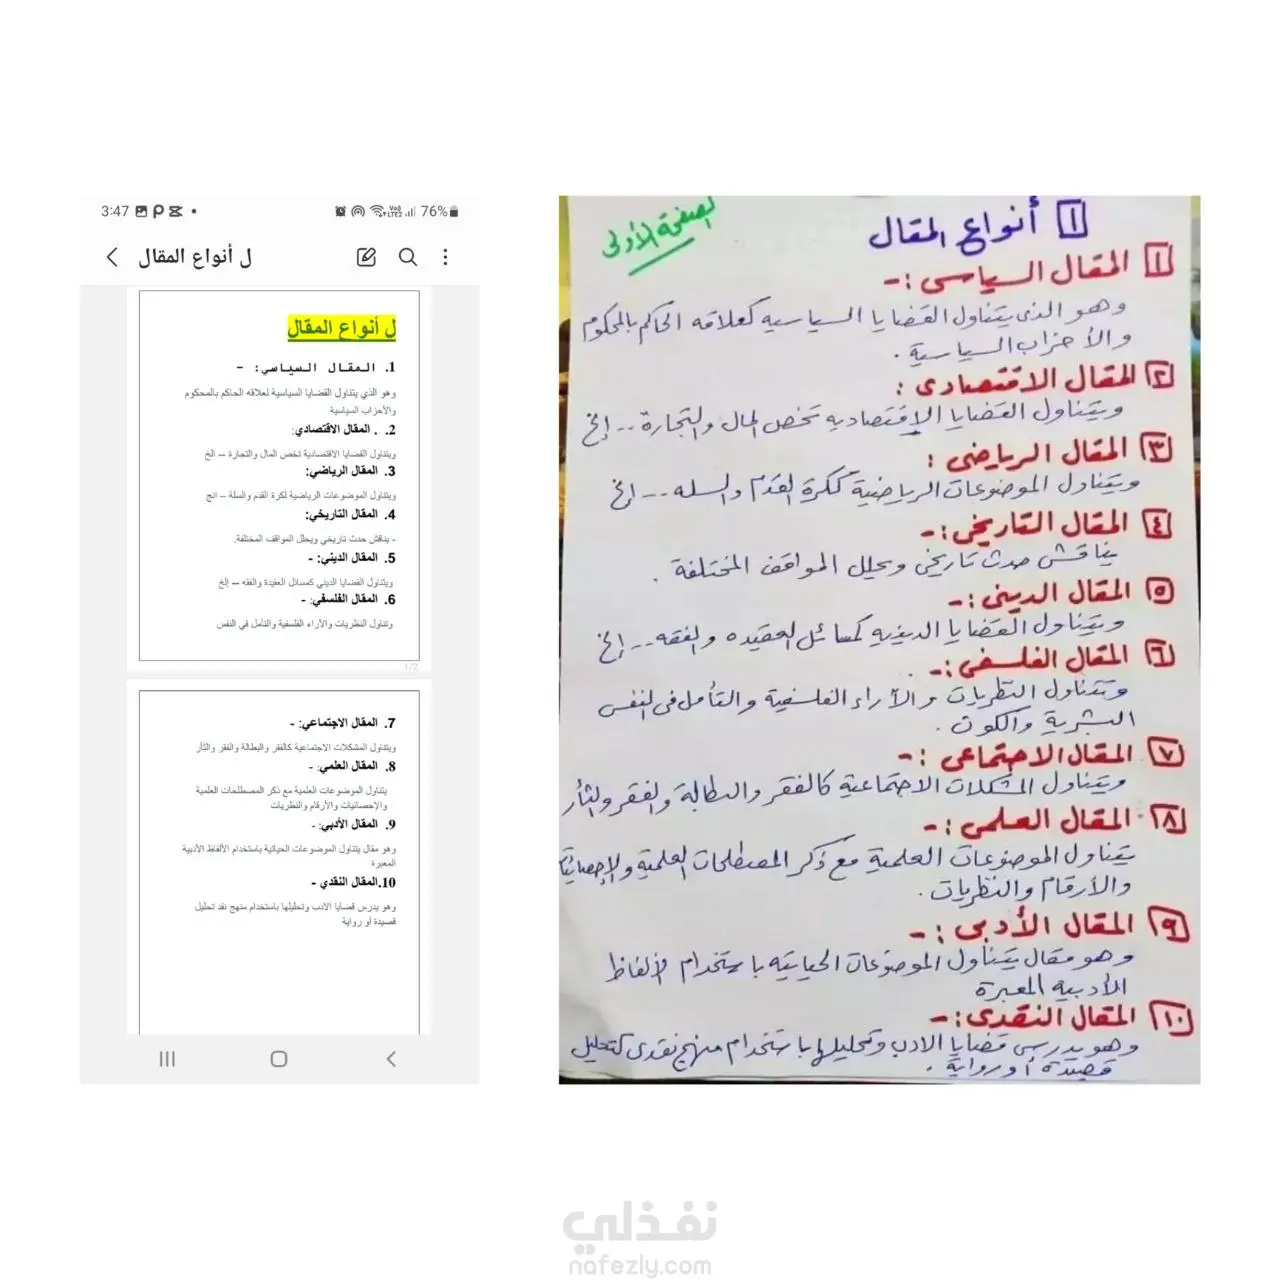 3:47
76%
ل أنواع المقال
ل أنواع المقال
1. المقال السياسي: -
وهو الذي يتناول القضايا السياسية لعلاقه الحاكم بالمحكوم
والأحزاب السياسية
2. . المقال الاقتصادي:
ويتناول القضايا الاقتصادية تخص المال والتجارة -- الخ
3. المقال الرياضي:
ويتناول الموضوعات الرياضية لكرة القدم والسلة -- انج
4. المقال التاريخي:
- يناقش حدث تاريخي ويحلل المواقف المختلفة.
5. المقال الديني: -
ويتناول القضايا الديني كمسائل العقيدة والفقه -- إلخ
6. المقال الفلسفي: -
وتناول النظريات والآراء الفلسفية والتأمل في النفس
1/2
7. المقال الاجتماعي: -
ويتناول المشكلات الاجتماعية كالفقر والبطالة والفقر والثأر
8. المقال العلمي: -
يتناول الموضوعات العلمية مع ذكر المصطلحات العلمية
والإحصائيات والأرقام والنظريات
9. المقال الأدبي: -
وهو مقال يتناول الموضوعات الحياتية باستخدام الألفاظ الأدبية
المعبرة
10. المقال النقدي -
وهو يدرس قضايا الادب وتحليلها باستخدام منهج نقد تحليل
قصيدة أو رواية
الصفحة الأولى
١ أنواع المقال
١ المقال السياسى :-
وهو الذى يتناول القضايا السياسيه كعلاقه الحاكم بالمحكوم
والأحزاب السياسية .
٢ المقال الاقتصادى :
ويتناول القضايا الإقتصاديه تخص المال والتجارة -- إلخ
٣ المقال الرياضى :
ويتناول الموضوعات الرياضية ككرة القدم والسله --- إلخ
٤ المقال التاريخى :-
يناقش حدث تاريخى ويحلل المواقف المختلفة .
٥ المقال الدينى :-
ويتناول القضايا الدينيه كمسائل العقيده والفقه --- إلخ
٦ المقال الفلسفى :-
وتتناول النظريات والآراء الفلسفية والتأمل فى النفس
البشرية والكون .
٧ المقال الاجتماعى :-
ويتناول المشكلات الاجتماعية كالفقر والبطالة والفقر والثأر
٨ المقال العلمى :-
يتناول الموضوعات العلمية مع ذكر المصطلحات العلمية والإحصائيات
والأرقام والنظريات .
٩ المقال الأدبى :-
وهو مقال يتناول الموضوعات الحياتيه باستخدام الألفاظ
الأدبيه المعبرة
١٠ المقال النقدى :-
وهو يدرس قضايا الادب وتحليلها باستخدام منهج نقدى كتحليل
قصيدة أو رواية .
نفذلي
nafezly.com